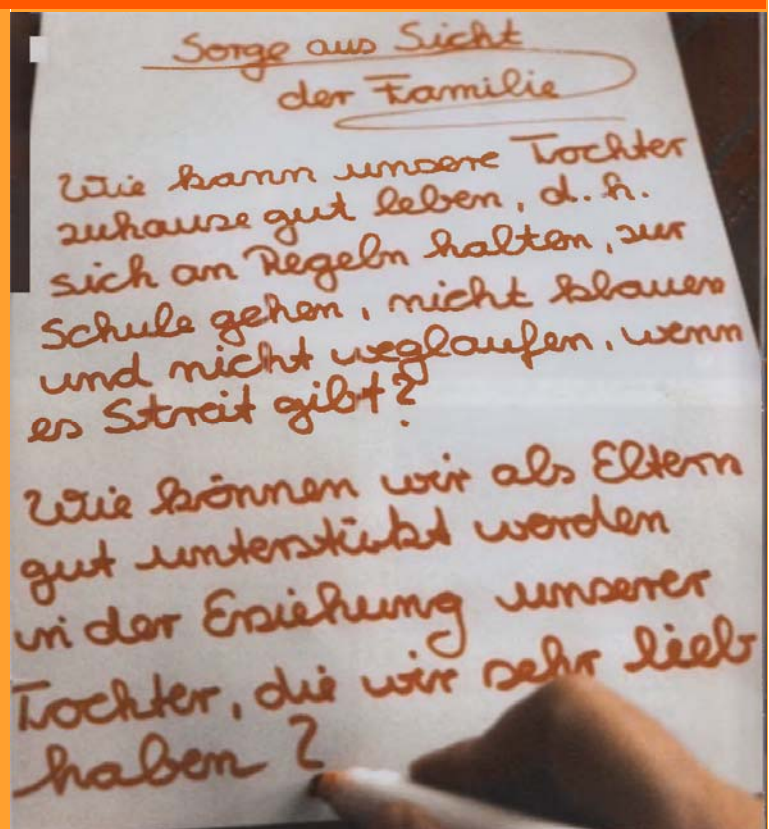 Sorge aus Sicht
der Familie
Wie kann unsere Tochter
zuhause gut leben, d.h.
sich an Regeln halten, zur
Schule gehen, nicht klauen
und nicht weglaufen, wenn
es Streit gibt?
Wie können wir als Eltern
gut unterstützt werden
in der Erziehung unserer
Tochter, die wir sehr lieb
haben?